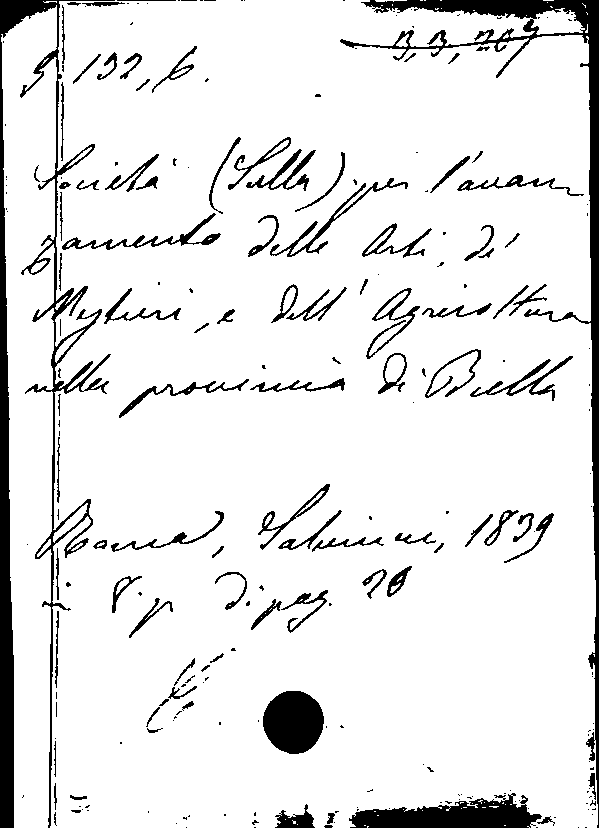 3, 3, 207
S. 132, 6.
Società (Sulla) per l'avan
zamento delle Arti, de'
Mestieri, e dell' Agricoltura
nella provincia di Biella
Roma, Salviucci, 1839
in 8. p di pag. 20